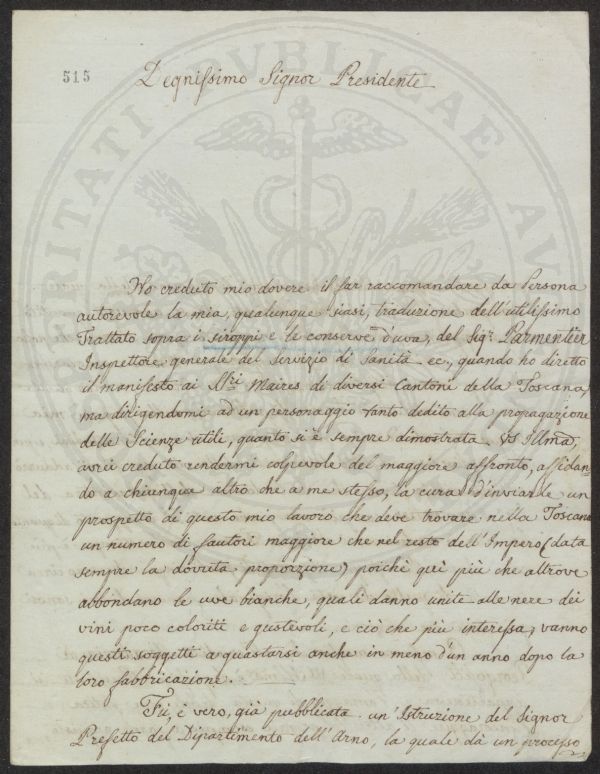 515
Degnissimo Signor Presidente
Ho creduto mio dovere il far raccomandare da Persona
autorevole la mia, qualunque siasi, traduzione dell'utilissimo
Trattato sopra i siroppi e le conserve d'uva, del Sigr. Parmentier
Inspettore generale del servizio di Sanità ec., quando ho diretto
il manifesto ai SSri Maires di diversi Cantoni della Toscana,
ma dirigendomi ad un personaggio tanto dedito alla propagazione
delle Scienze utili, quanto si è sempre dimostrata VS Illma,
avrei creduto rendermi colpevole del maggiore affronto, affidan=
do a chiunque altro che a me stesso, la cura d'inviarle un
prospetto di questo mio lavoro che deve trovare nella Toscana
un numero di fautori maggiore che nel resto dell'Impero (data
sempre la dovuta proporzione) poichè quì più che altrove
abbondano le uve bianche, quali danno unite alle nere dei
vini poco coloriti e gustevoli, e ciò che più interessa, vanno
questi soggetti a guastarsi anche in meno d'un anno dopo la
loro fabbricazione.
Fù, è vero, già pubblicata un'Istruzione del Signor
Prefetto del Dipartimento dell'Arno, la quale dà un processo
PUBLICAE